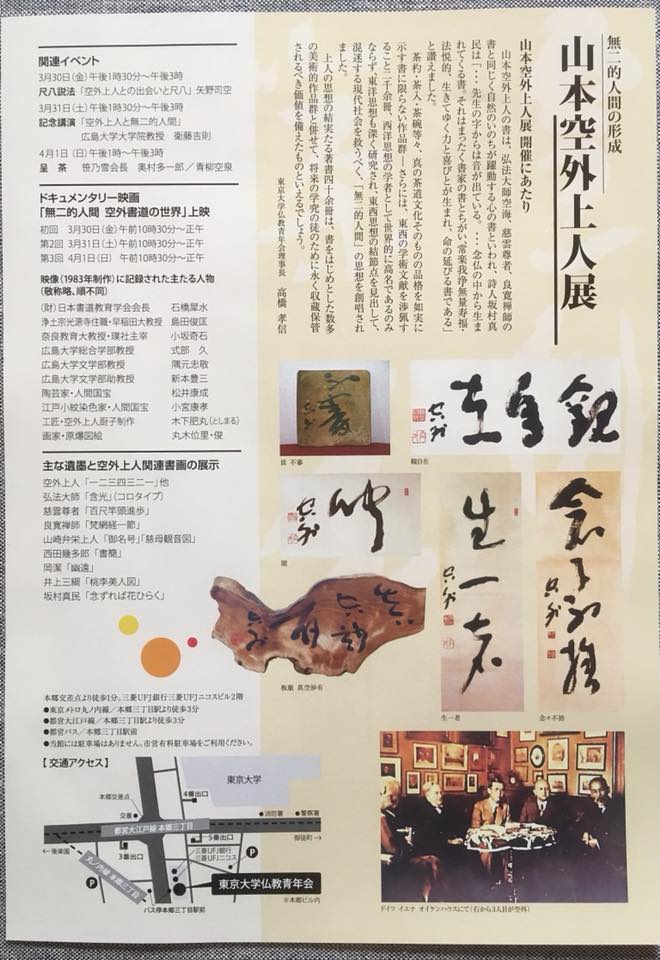 無二的人間の形成
山本空外上人展
山本空外上人展 開催にあたり
山本空外上人の書は、弘法大師空海、慈雲尊者、良寛禅師の
書と同じく自然のいのちが躍動する心の書といわれ、詩人坂村真
民は「・・・先生の字からは音が出ている。・・・念仏の中から生ま
れてくる書。それはまったく書家の書とちがい『常楽我浄無量寿福・
法悦的、生きてゆく力と喜びとが生まれ、命の延びる書である」
と讃えました。
茶杓・茶入・茶碗等々、真の茶道文化そのものの品格を如実に
示す書に限らない作品群―さらには、東西の学術文献を渉猟す
ること二千余冊、西洋思想の学者として世界的に高名であるのみ
ならず、東洋思想も深く研究され、東西思想の結節点を見出して、
混迷する現代社会を救うべく、「無二的人間」の思想を創唱され
ました。
上人の思想の結実たる著書四十余冊は、書をはじめとした数多
の美術的作品群と併せて、将来の学究の徒のために永く収蔵保管
されるべき価値を備えたものといえるでしょう。
東京大学仏教青年会理事長 高橋 孝信
関連イベント
3月30日(金)午後1時30分〜午後3時
尺八説法「空外上人との出会いと尺八」矢野司空
3月31日(土)午後1時30分〜午後3時
記念講演「空外上人と無二的人間」
広島大学大学院教授 衞藤吉則
4月1日(日)午後1時〜午後3時
呈 茶 笹乃雪会長 奥村多一郎/青柳空泉
ドキュメンタリー映画
「無二的人間 空外書道の世界」上映
初回 3月30日(金)午前10時30分〜正午
第2回 3月31日(土)午前10時30分〜正午
第3回 4月1日(日) 午前10時30分〜正午
映像(1983年制作)に記録された主たる人物
(敬称略、順不同)
(財)日本書道教育学会会長 石橋犀水
浄土宗光源寺住職・早稲田大教授 島田俊匡
奈良教育大教授・璞社主宰 小坂奇石
広島大学総合学部教授 式部 久
広島大学文学部教授 隈元忠敬
広島大学文学部助教授 新本豊三
陶芸家・人間国宝 松井康成
江戸小紋染色家・人間国宝 小宮康孝
工匠・空外上人厨子制作 木下肥丸(としまる)
画家・原爆図絵 丸木位里・俊
主な遺墨と空外上人関連書画の展示
空外上人「一二三四三二一」他
弘法大師「含光」(コロタイプ)
慈雲尊者「百尺竿頭進歩」
良寛禅師「梵網経一節」
山崎弁栄上人「御名号」「慈母観音図」
西田幾多郎「書簡」
岡潔「幽遠」
井上三綱「桃李美人図」
坂村真民「念ずれば花ひらく」
観自在
聞
板額 真空妙有
生一者
念々不捨
本郷交差点より徒歩1分。三菱UFJ銀行三菱UFJニコスビル2階
●東京メトロ丸ノ内線/本郷三丁目駅より徒歩3分
●都営大江戸線/本郷三丁目駅より徒歩3分
●都営バス/本郷三丁目駅前
●当館には駐車場はありません。市営有料駐車場をご利用ください。
【交通アクセス】
東京大学
本郷交差点
4番出口
交番
●消防署
●警察署
都営大江戸線 本郷三丁目
←後楽園
3番出口
5番出口
御徒町→
三菱UFJ銀行
三菱UFJニコス
P
P
丸ノ内線 本郷三丁目
東京大学仏教青年会
バス停本郷三丁目駅前
※本郷ビル内
ドイツ イエナ オイケンハウスにて(右から3人目が空外)